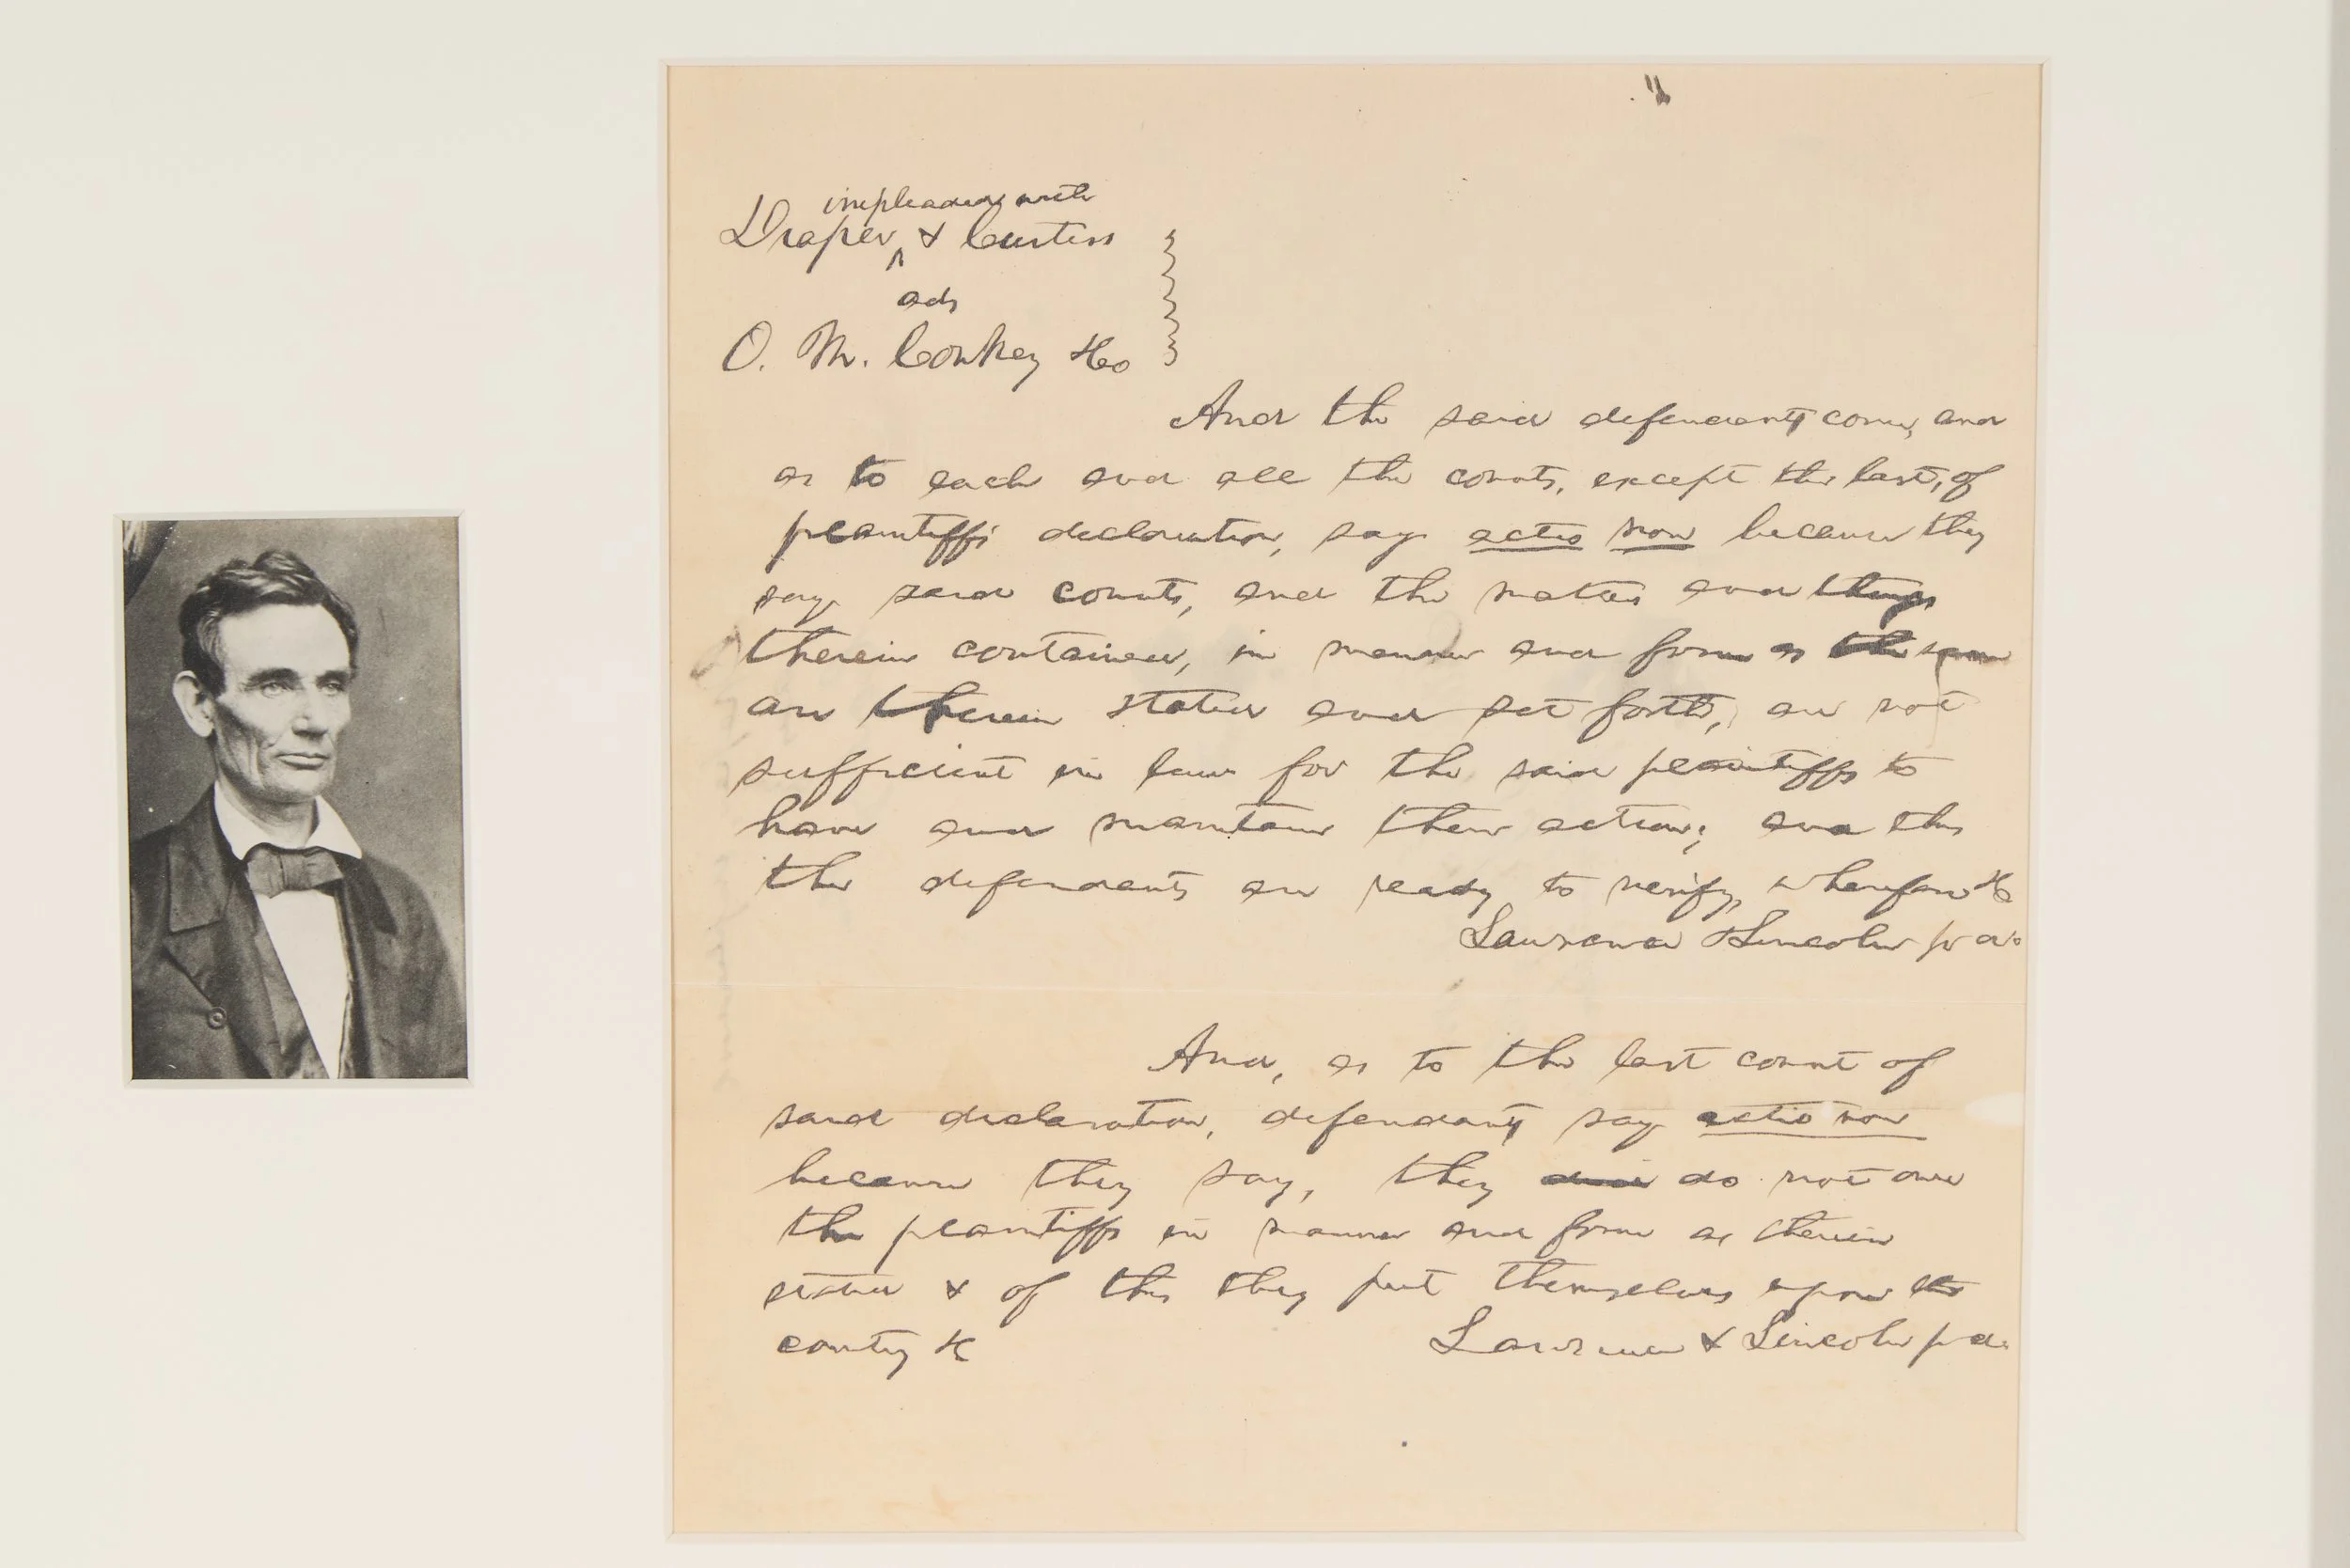 impleaded with
Draper & Curtiss
ads
O. M. Conkey &Co
And the said defendants come, and
as to each and all the counts, except the last, of
plaintiffs declaration, say actio non because they
say said counts, and the matters and things
therein contained, in manner and form as the same
are therein stated and set forth, are not
sufficient in law for the said plaintiffs to
have and maintain their action; and this
the defendants are ready to verify, wherefore &c
Laurence & Lincoln p d.
And, as to the last count of
said declaration, defendants say actio non
because they say, they do not owe
the plaintiffs in manner and form as therein
stated & of this they put themselves upon the
country &c Lawrence & Lincoln p d.